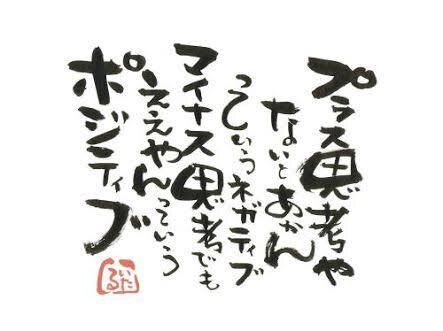 プラス思考や
ないとあかん
っていうネガティブ
マイナス思考でも
ええやんっていう
ポジティブ